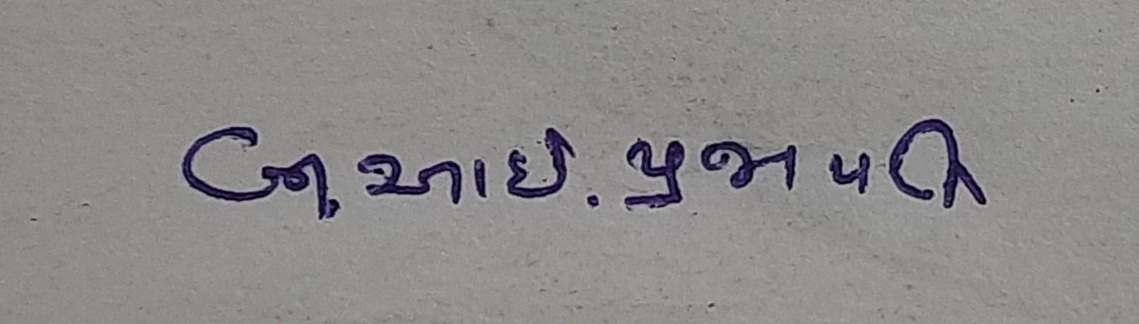 આઈ. પ્રજાપતિ